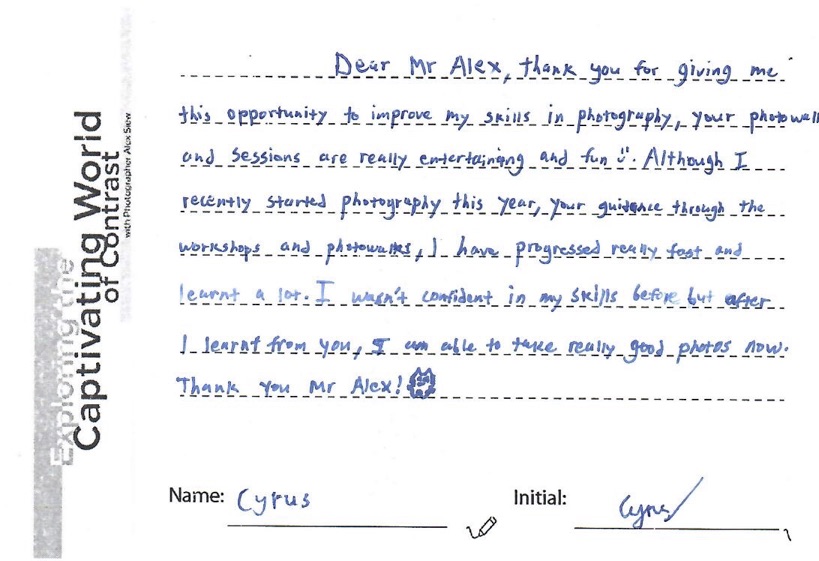 Exploring the
Captivating World
of Contrast
with Photographer Alex Siew
Dear Mr Alex, thank you for giving me
this opportunity to improve my skills in photography, your photowalk
and sessions are really entertaining and fun Although I
recently started photography this year, your guidance through the
workshops and photowalks, I have progressed really fast and
learnt a lot. I wasn't confident in my skills before but after
I learnt from you, I am able to take really good photos now.
Thank you Mr Alex!
Name: Cyrus
Initial: Cyrus